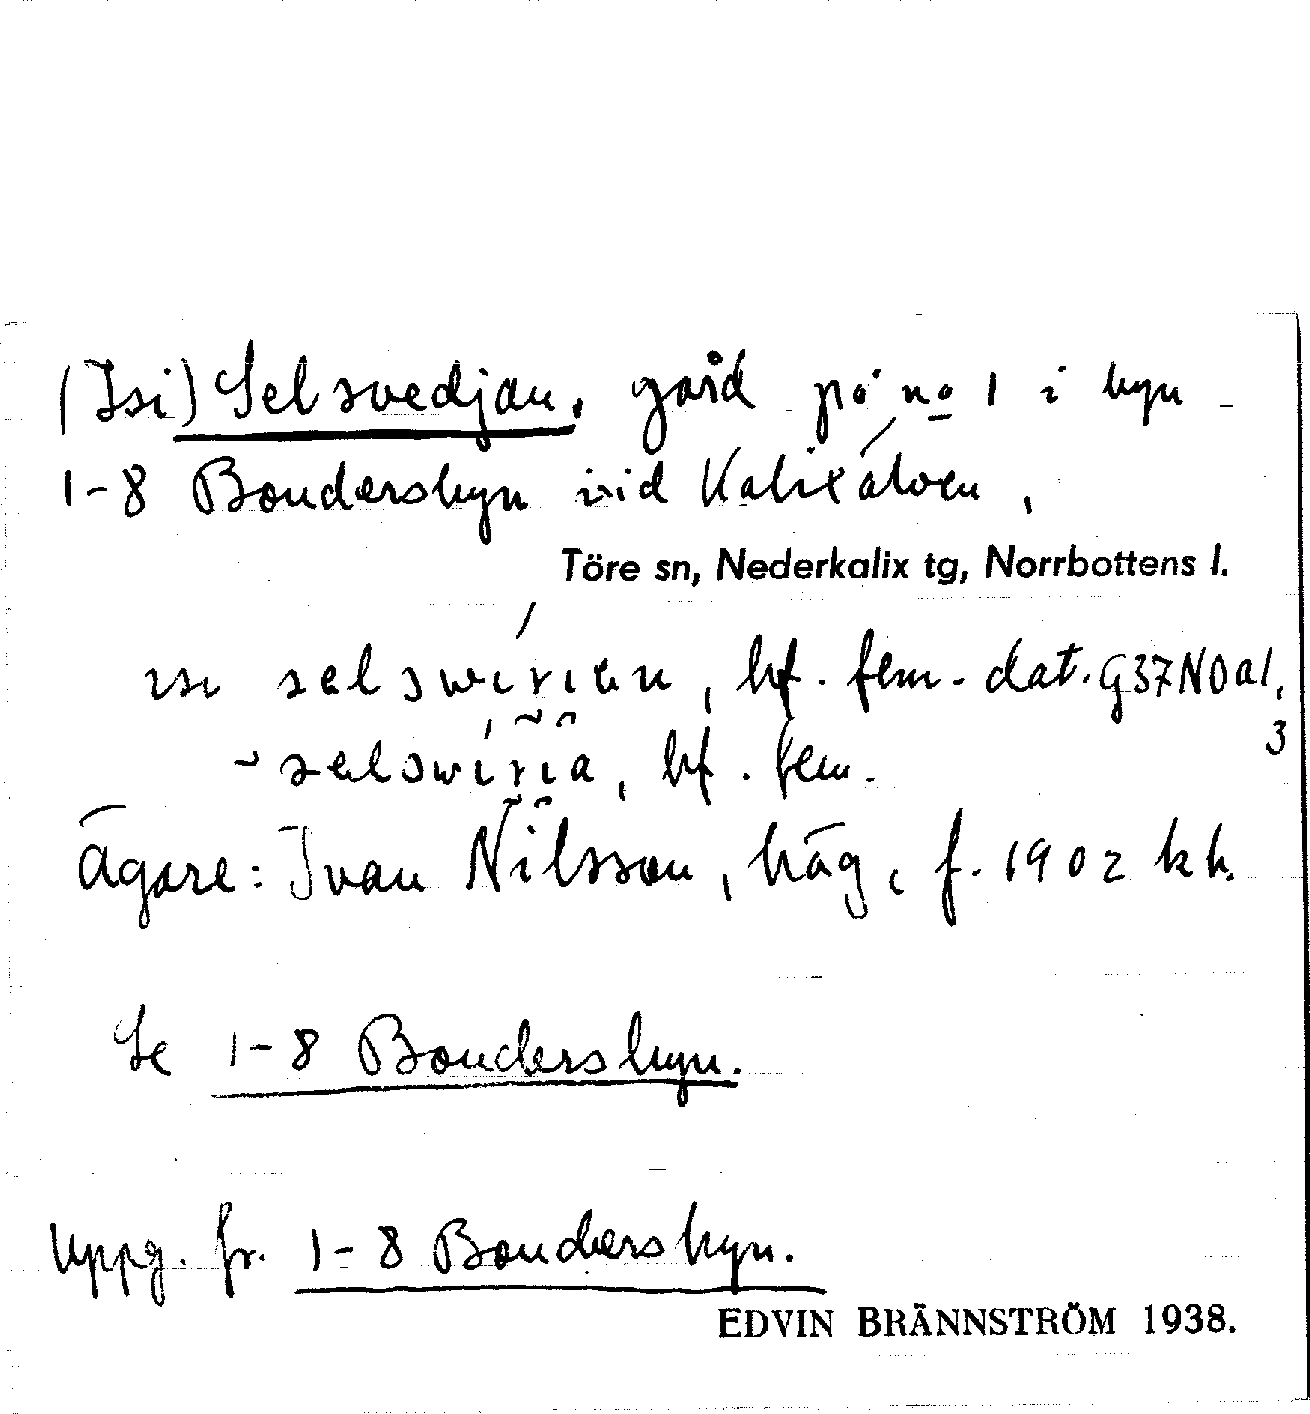 (Isi) Selsvedjan, gård på no 1 i byn
1-8 Bondersbyn vid Kalixälven,
Töre sn, Nederkalix tg, Norrbottens l.
bf. fem. dat. G37N0a1,
3
bf. fem.
Ägare: Ivan Nilsson, häg, f. 1902 kh.
Se 1-8 Bondersbyn.
Uppg. fr. 1-8 Bondersbyn.
EDVIN BRÄNNSTRÖM 1938.